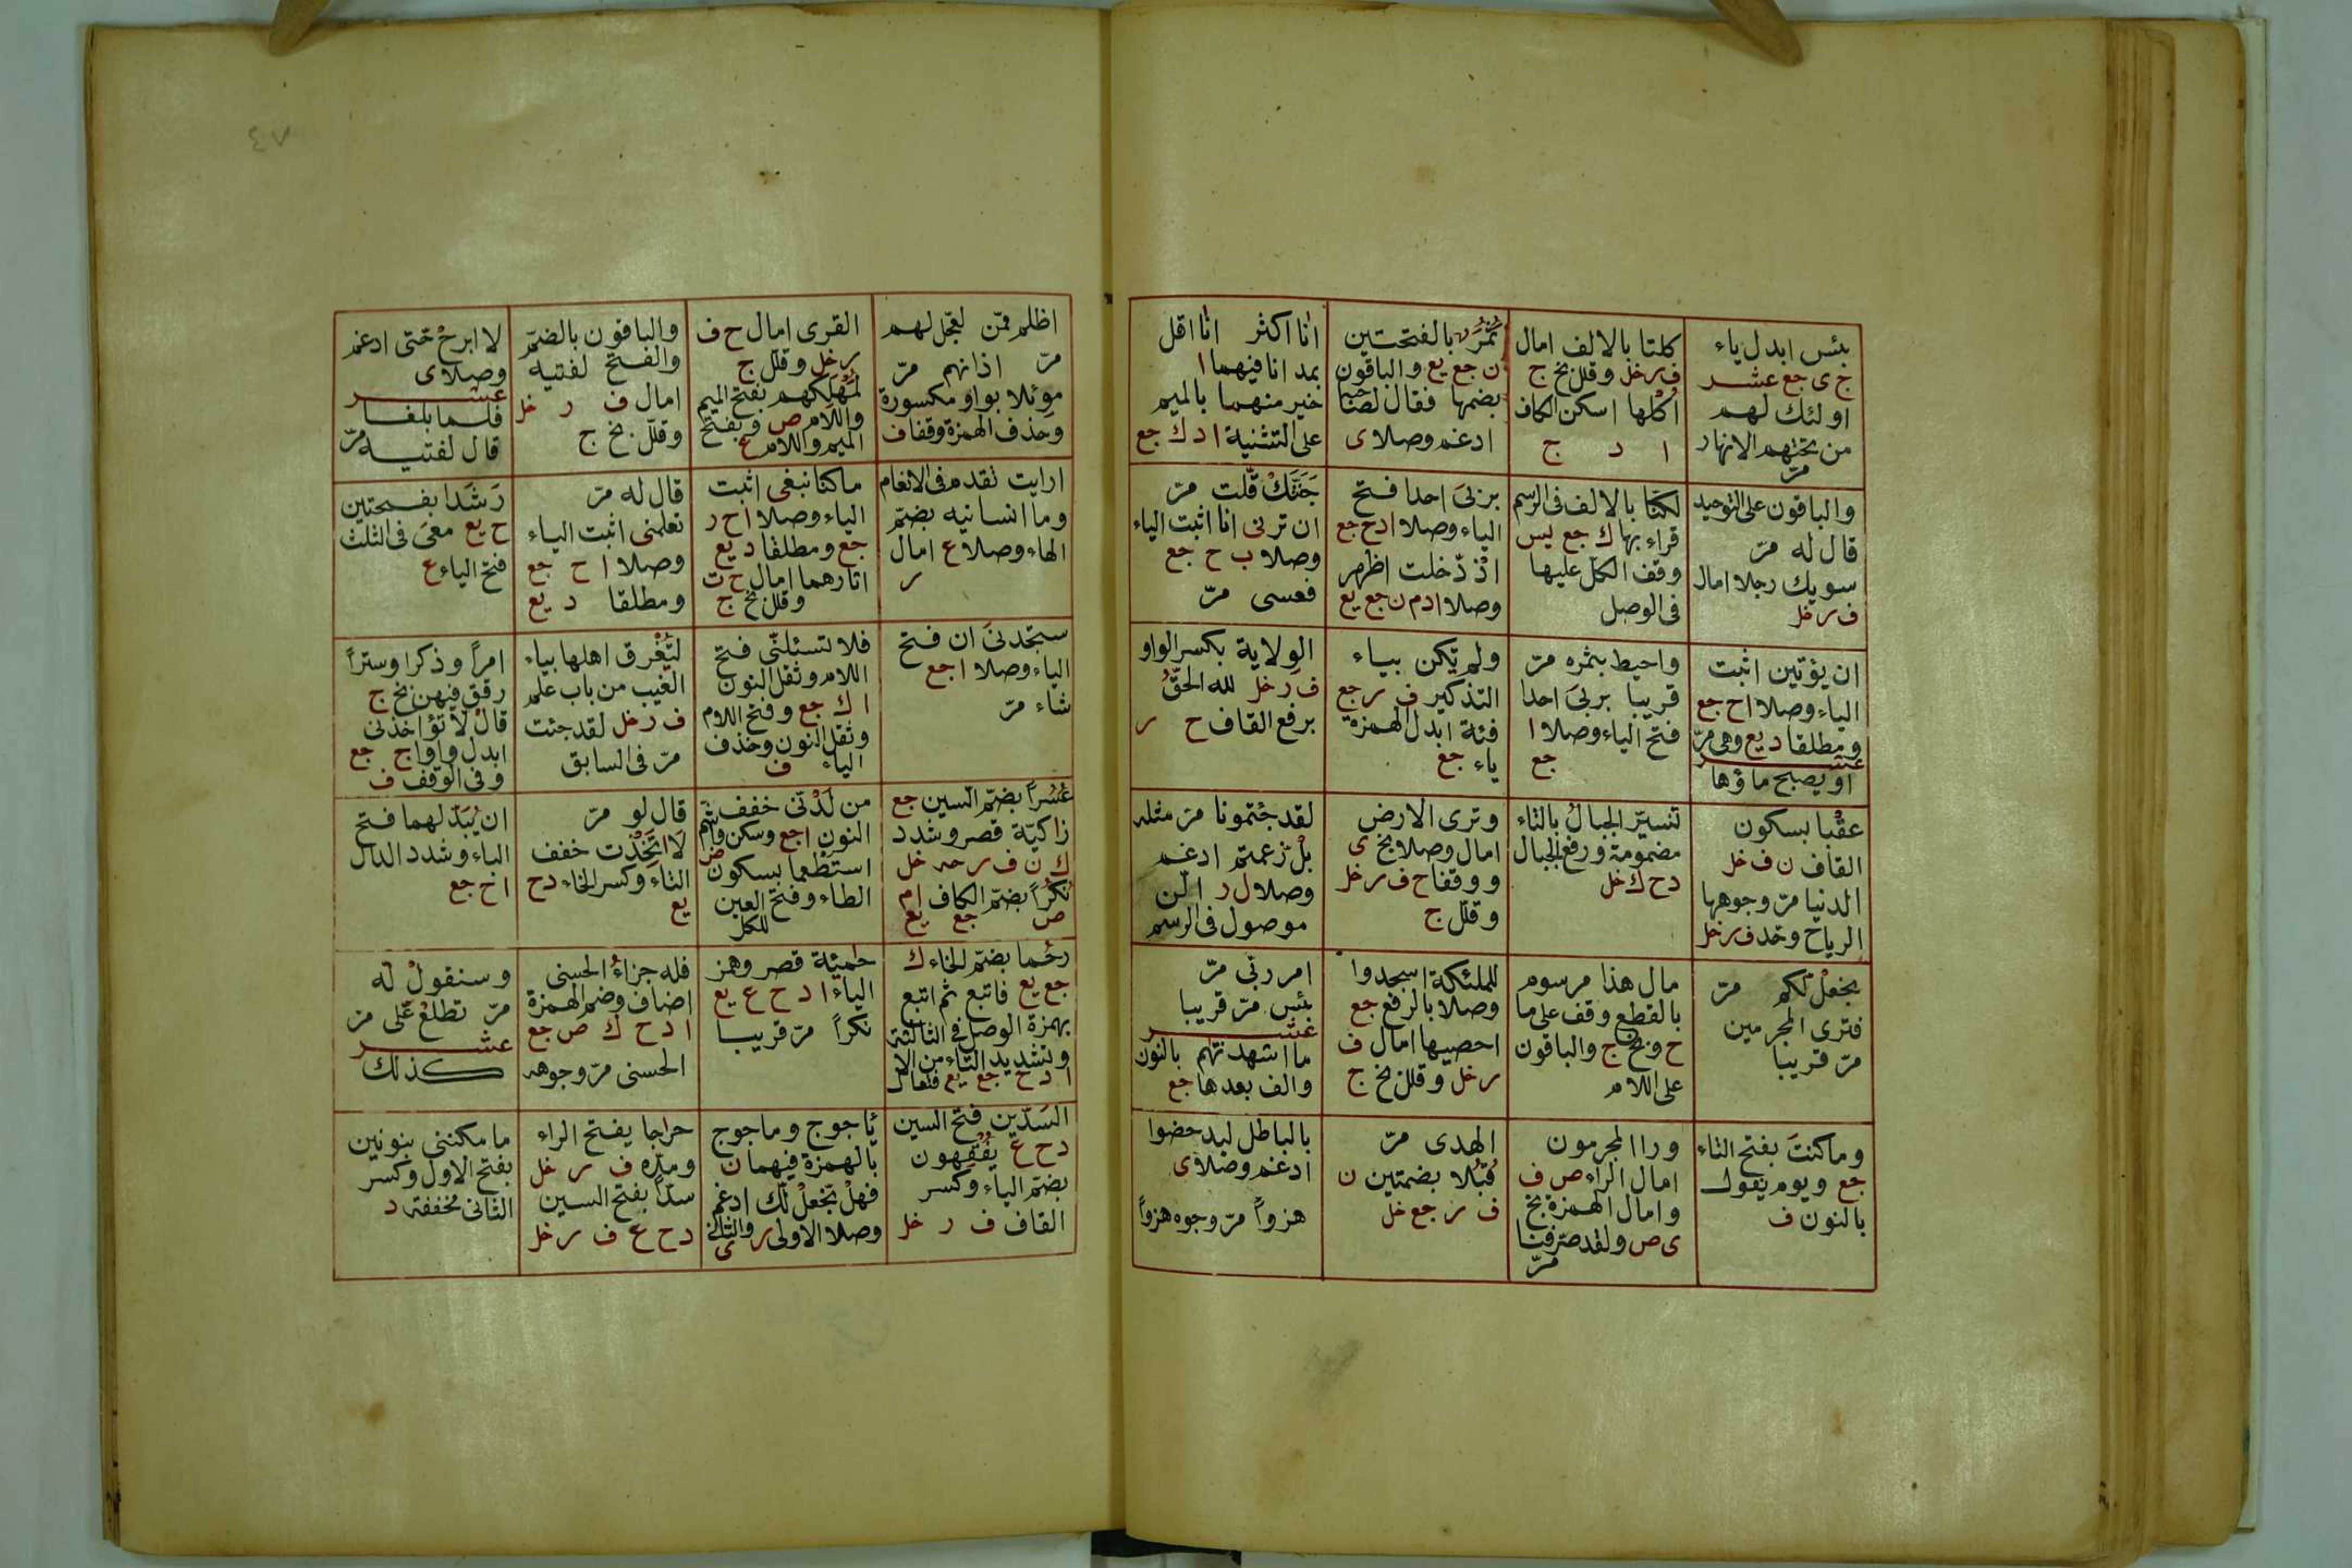 ٤٧
بئس ابدل ياء
ج ى جع عشر
اولئك لهم
من تحتهم الانهار
مرّ
كلتا بالالف امال
ف ر خل وقلل بخ ج
اُكْلها اسكن الكاف
ا د ج
ثَمَرٌ بالفتحتين
ن جع يع والباقون
بضمها فقال لصاحبه
ادغم وصلا ى
انا اكثر انا اقل
بمد انا فيهما ا
خير منهما بالميم
على التثنية ا د ك جع
والباقون على التوحيد
قال له مرّ
سويك رجلا امال
ف ر خل
لكنا بالالف فى الرسم
قراء بها ك جع يس
وقف الكل عليها
فى الوصل
بربىَ احدا فتح
الياء وصلا ا د ح جع
اذْ دّخلت اظهر
وصلا ا د م ن جع يع
جَنَّتَكْ قّلت مرّ
ان ترنى انا اثبت الياء
وصلا ب ح جع
فعسى مرّ
ان يؤتين اثبت
الياء وصلا ا ح جع
ومطلقا د يع وهى مرّ
عشر
او يصبح ماؤها
واحيط بثمره مرّ
قريبا بربىَ احدا
فتح الياء وصلا ا
جع
ولم يكن بياء
التذكير ف ر جع
فئة ابدل الهمزة
ياء جع
الوِلاية بكسر الواو
ف ر خل لله الحقُّ
برفع القاف ح ر
عقْبا بسكون
القاف ن ف خل
الدنيا مرّ وجوهها
الرياح وحد ف ر خل
تسيّر الجبالُ بالتاء
مضمومة ورفع الجبال
د ح ك خل
وترى الارض
امال وصلا بخ ى
ووقفا ح ف ر خل
وقلّل ج
لقد جئتمونا مرّ مثله
بلْ زّعمتم ادغم
وصلا ل ر الّن
موصول فى الرسم
نجعلْ لّكم مرّ
فترى المجرمين
مرّ قريبا
مال هذا مرسوم
بالقطع وقف على ما
ح وبخ ج والباقون
على اللام
للملئكة اسجدوا
وصلا بالرفع جع
احصيها امال ف
ر خل وقلل بخ ج
امر ربّى مرّ
بئس مرّ قريبا
عشر
ما اشهدتهم بالنون
والف بعدها جع
وما كنتَ بفتح التاء
جع ويوم يقول
بالنون ف
ورا المجرمون
امال الراء ص ف
وامال الهمزة بخ
ى ص ولقد صرّفنا
مرّ
الهدى مرّ
قُبُلا بضمتين ن
ف ر جع خل
بالباطل ليدحضوا
ادغم وصلا ى
هزواً مرّ وجوه هزواً
اظلم ممّن لعجّل لهم
مرّ اذانهم مرّ
موئلا بواو مكسورة
وحذف الهمزة وقفا ف
القرى امال ح ف
ر خل وقلل ج
لمَهْلَكهم بفتح الميم
واللام ص وبفتح
الميم واللام ع
والباقون بالضمّ
والفتح لفتيه
امال ف ر خل
وقلّل بخ ج
لا ابرحْ حّتى ادغم
وصلا ى
عشر
فلما بلغا
قال لفتيه مرّ
ارايت تقدم فى الانعام
وما انسانيه بضمّ
الهاء وصلا ع امال
ر
ما كنا نبغى اثبت
الياء وصلا ا ح ر
جع ومطلقا د يع
اثارهما امال ح ت
وقلل بخ ج
قال له مرّ
تعلمنى اثبت الياء
وصلا ا ح جع
ومطلقا د يع
رَشَدا بفتحتين
ح يع معىَ فى الثلث
فتح الياء ع
ستجدنىَ ان فتح
الياء وصلا ا جع
شاء مرّ
فلا تسئلنّى فتح
اللام وثقل النون
ا ك جع وفتح اللام
وثقل النون وحذف
الياء ف
ليَغْرق اهلها بياء
الغيب من باب علم
ف ر خل لقد جئت
مرّ فى السابق
امراً وذكرا وستراً
رقق فيهن بخ ج
قال لا تؤاخذنى
ابدل واوا ج جع
وفى الوقف ف
عُسُراً بضمّ السين جع
زاكيّة قصر وشدد
ك ن ف ر حه خل
نُكُراً بضمّ الكاف ا م
ص جع يع
من لَدُنّى خفف
النون ا جع وسكن واشم
ص
استطْعما بسكون
الطاء وفتح العين
للكل
قال لو مرّ
لَا اتَّخَذْت خفف
التاء وكسر الخاء د ح
يع
ان يُبَدّلهما فتح
الباء وشدد الدال
ا ح جع
رحُما بضمّ الحاء ك
جع يع فاتبع ثم اتبع
بهمزة الوصل فى الثالثة
وتشديد التاء من الا
ا د ح جع يع فتعال
حمئة قصر وهمز
الياء ا د ح ع يع
نكراً مرّ قريبا
فله جزاءُ الحسنى
اضاف وضم الهمزة
ا د ح ك ص جع
الحسنى مرّ وجوهه
وسنقولْ لّه
مرّ تطلعْ عّلى مرّ
عشر
كذلك
السَدّين فتح السين
د ح ع يُفْقِهون
بضمّ الياء وكسر
القاف ف ر خل
يأجوج ومأجوج
بالهمزة فيهما ن
فهلْ نّجعلْ لّك ادغم
وصلا الاولى ر والثانى
ى
خراجا بفتح الراء
ومدّه ف ر خل
سدّاً بفتح السين
د ح ع ف ر خل
ما مكننى بنونين
بفتح الاول وكسر
الثانى مخففة د